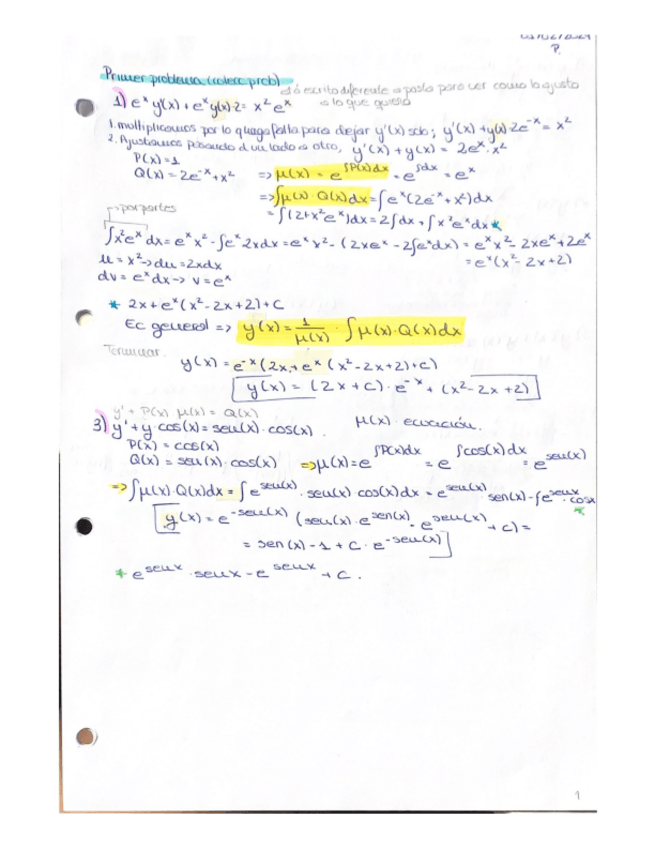 P.
Primer problema (colecc prob)
está escrito diferente a posta para ver como lo ajusto
a lo que quiero
1) eˣ y'(x) + eˣ y(x) - 2 = x² eˣ
1. multiplicamos por lo que falta para dejar y'(x) solo; y'(x) + y(x) - 2e⁻ˣ = x²
2. Ajustamos pasando de un lado a otro, y'(x) + y(x) = 2eˣ · x²
P(x) = 1
Q(x) = 2e⁻ˣ + x² => μ(x) = e^∫P(x)dx = e^∫dx = eˣ
=> ∫μ(x) · Q(x)dx = ∫eˣ(2e⁻ˣ + x²)dx
por partes = ∫(2 + x²eˣ)dx = 2∫dx + ∫x²eˣdx *
∫x²eˣ dx = eˣ x² - ∫eˣ 2xdx = eˣ x² - (2xeˣ - 2∫eˣdx) = eˣx² - 2xeˣ + 2eˣ
u = x² -> du = 2xdx
= eˣ(x² - 2x + 2)
dv = eˣdx -> v = eˣ
* 2x + eˣ(x² - 2x + 2) + C
Ec general => y(x) = 1/μ(x) · ∫μ(x) · Q(x)dx
Terminar.
y(x) = e⁻ˣ(2x + eˣ(x² - 2x + 2) + C)
y(x) = (2x + C) · e⁻ˣ + (x² - 2x + 2)
y' + P(x) μ(x) = Q(x)
3) y' + y · cos(x) = sen(x) · cos(x). μ(x) · ecuación.
P(x) = cos(x)
Q(x) = sen(x) · cos(x) => μ(x) = e^∫P(x)dx = e^∫cos(x)dx = e^sen(x)
=> ∫μ(x) · Q(x)dx = ∫e^sen(x) · sen(x) cos(x)dx = e^sen(x) sen(x) - ∫e^senx · cosx *
y(x) = e^-sen(x) (sen(x) · e^sen(x) - e^sen(x) + C) =
= sen(x) - 1 + C · e^-sen(x)
* e^senx · senx - e^senx + C.
1